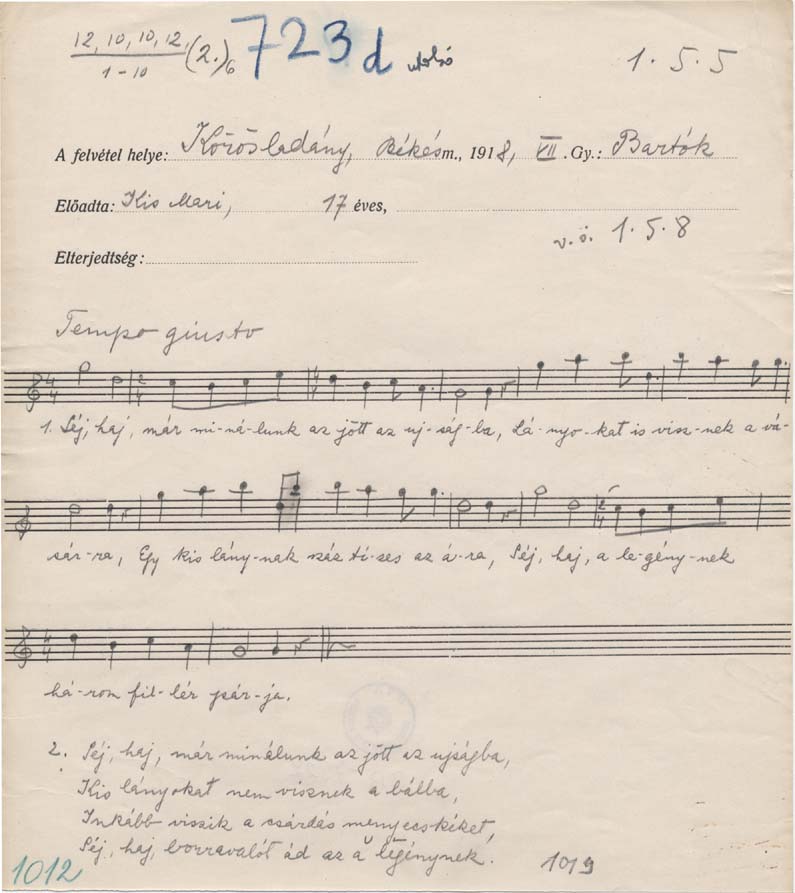 12, 10, 10, 12,
1-10
(2.)6
723 d utolsó
1. 5. 5
A felvétel helye: Körösladány, Békésm., 1918, VII. Gy.: Bartók
Előadta: Kis Mari, 17 éves,
v.ö. 1. 5. 8
Elterjedtség:
Tempo giusto
4 4 2 4 4 4
1. Séj, haj, már mi-ná-lunk az jött az uj-ság-ba, Lá-nyo-kat is visz-nek a vá-
sár-ra, Egy kis lány-nak száz tí-zes az á-ra, Séj, haj, a le-gény-nek
2 4
4 4
há-rom fil-lér pár-ja.
2. Séj, haj, már minálunk az jött az ujságba,
Kis lányokat nem visznek a bálba,
Inkább viszik a csárdás menyecskéket,
Séj, haj, borravalót ád az a legénynek.
1012
1019